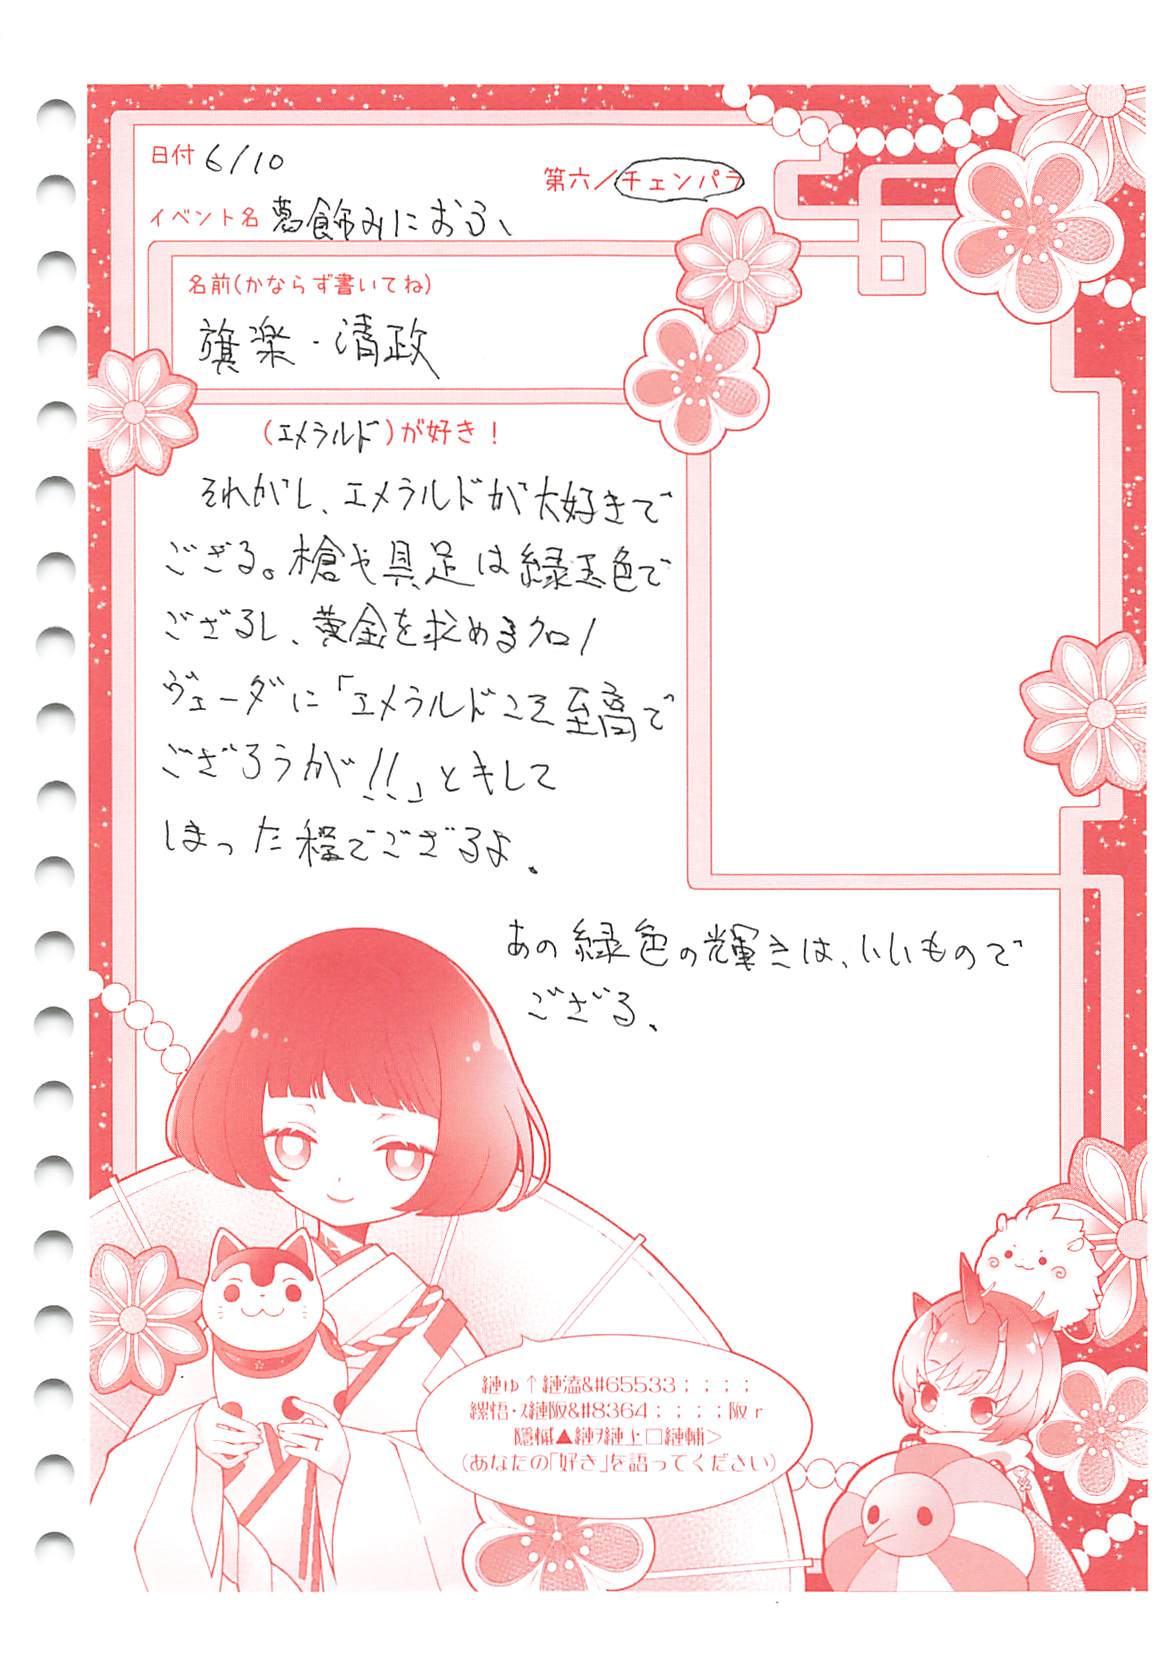 日付 6/10
第六/チェンパラ
イベント名 葛飾みにおふ、
名前(かならず書いてね)
旗楽・清政
(エメラルド)が好き!
それがし、エメラルドが大好きで
ござる。槍や具足は緑玉色で
ござるし、黄金を求めるクロノ
ヴェーダに「エメラルドこそ至高で
ござろうが!!」とキレて
しまった程でござるよ。
あの緑色の輝きは、いいもので
ござる。
縺ゅ↑縺溘&#65533;;;;
縲悟・ス縺阪&#8364;;;;阪r
隱槭▲縺ヲ縺上□縺輔>
(あなたの「好き」を語ってください)